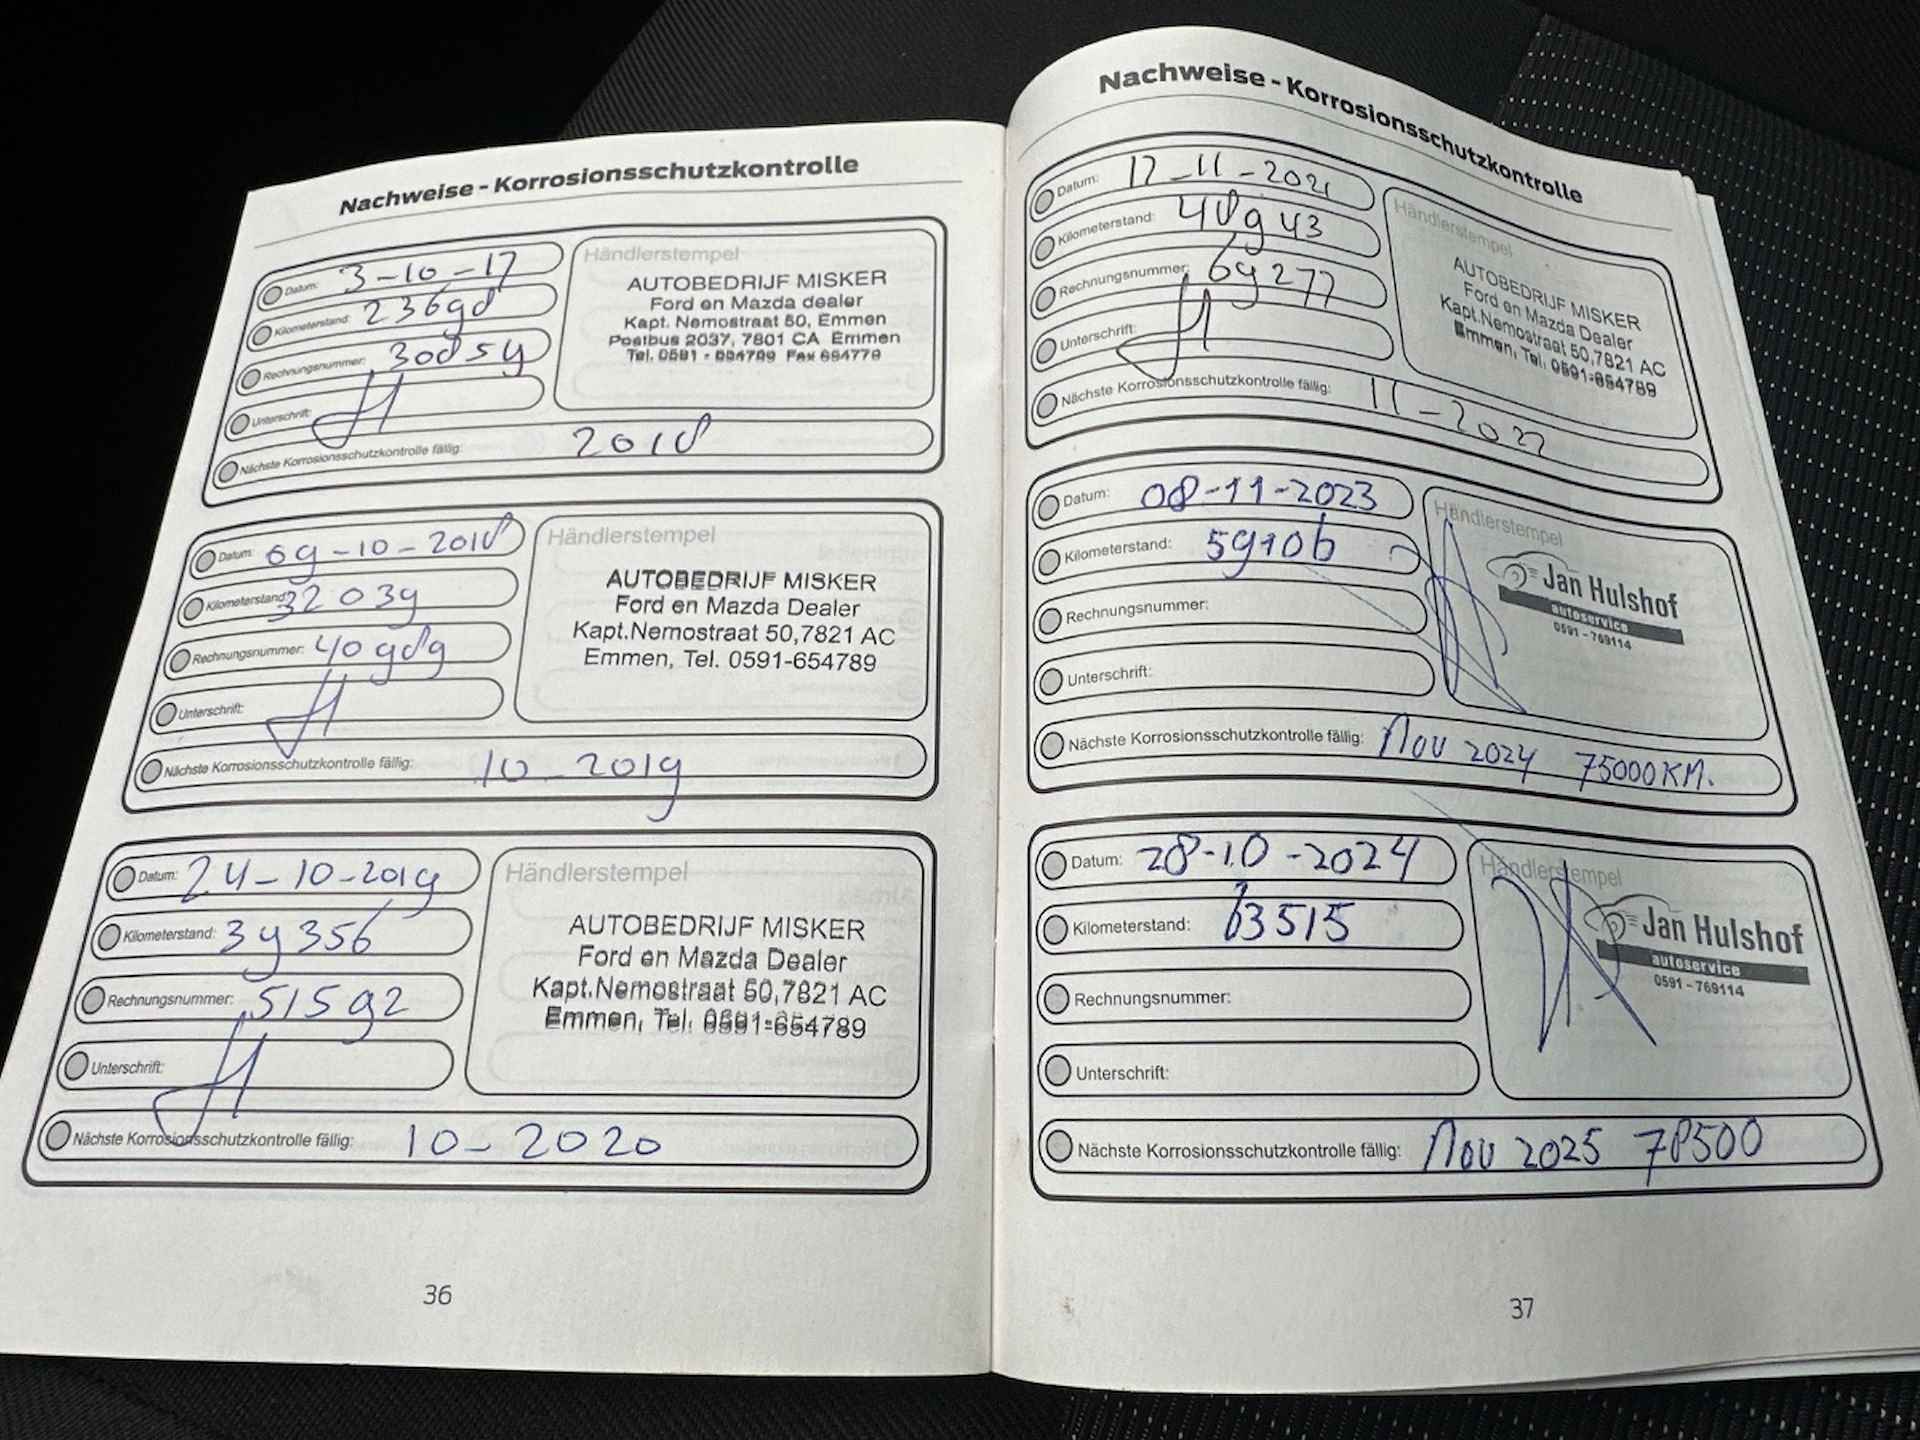 Nachweise - Korrosionsschutzkontrolle
Datum: 3-10-17
Kilometerstand: 23698
Rechnungsnummer: 30854
Unterschrift:
Nächste Korrosionsschutzkontrolle fällig: 2018
Händlerstempel
AUTOBEDRIJF MISKER
Ford en Mazda dealer
Kapt. Nemostraat 50, Emmen
Postbus 2037, 7801 CA Emmen
Tel. 0591 - 654789 Fax 654779
Datum: 09-10-2018
Kilometerstand: 32039
Rechnungsnummer: 40989
Unterschrift:
Nächste Korrosionsschutzkontrolle fällig: 10-2019
Händlerstempel
AUTOBEDRIJF MISKER
Ford en Mazda Dealer
Kapt.Nemostraat 50,7821 AC
Emmen, Tel. 0591-654789
Datum: 24-10-2019
Kilometerstand: 39356
Rechnungsnummer: 51592
Unterschrift:
Nächste Korrosionsschutzkontrolle fällig: 10-2020
Händlerstempel
AUTOBEDRIJF MISKER
Ford en Mazda Dealer
Kapt.Nemostraat 50,7821 AC
Emmen, Tel. 0591-654789
36
Nachweise - Korrosionsschutzkontrolle
Datum: 12-11-2021
Kilometerstand: 48943
Rechnungsnummer: 69277
Unterschrift:
Nächste Korrosionsschutzkontrolle fällig: 11-2022
Händlerstempel
AUTOBEDRIJF MISKER
Ford en Mazda Dealer
Kapt.Nemostraat 50,7821 AC
Emmen, Tel. 0591-654789
Datum: 08-11-2023
Kilometerstand: 59106
Rechnungsnummer:
Unterschrift:
Nächste Korrosionsschutzkontrolle fällig: Nov 2024 75000KM.
Händlerstempel
Jan Hulshof
autoservice
0591 - 769114
Datum: 28-10-2024
Kilometerstand: 63515
Rechnungsnummer:
Unterschrift:
Nächste Korrosionsschutzkontrolle fällig: Nov 2025 78500
Händlerstempel
Jan Hulshof
autoservice
0591 - 769114
37